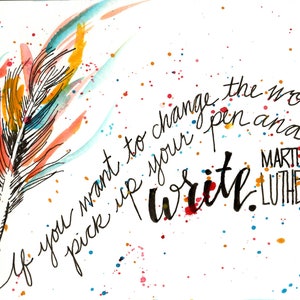 If you want to change the wo
pick up your pen and
write.
MARTI
LUTHE